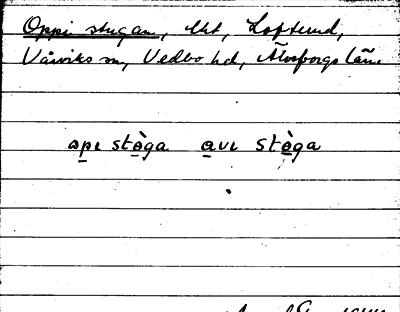 Oppi stugan, tkt, Loftsund,
Vårviks sn, Vedbo hd, Älvsborgs län.
ope stòga ave stòga